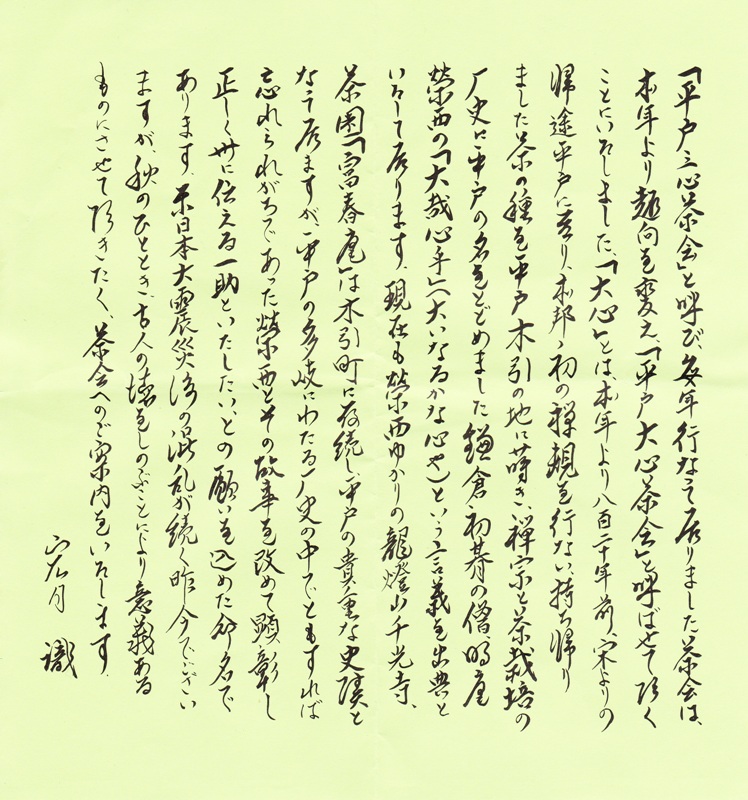 「平戸三心茶会」と呼び、毎年行なって居りました茶会は、
本年より趣向を変え、「平戸大心茶会」と呼ばせて頂く
ことにいたしました。「大心」とは、本年より八百二十年前、宋よりの
帰途平戸に寄り、本邦初の禅規を行ない、持ち帰り
ました茶の種を平戸木引の地に蒔き、禅宗と茶栽培の
歴史に平戸の名をとどめました鎌倉初期の僧、明庵
榮西の「大哉心乎」(大いなるかな心や)という言義を出典と
いたして居ります。現在も榮西ゆかりの龍燈山千光寺、
茶園「富春庵」は木引町に存続し、平戸の貴重な史蹟と
なって居ますが、平戸の多岐にわたる歴史の中でともすれば
忘れられがちであった榮西とその故事を改めて顕彰し
正しく世に伝える一助といたしたい、との願いを込めた命名で
あります。東日本大震災後の混乱が続く昨今でござい
ますが、秋のひととき、古人の懐をしのぶことにより意義ある
ものにさせて頂きたく、茶会へのご案内をいたします。
宏月 識